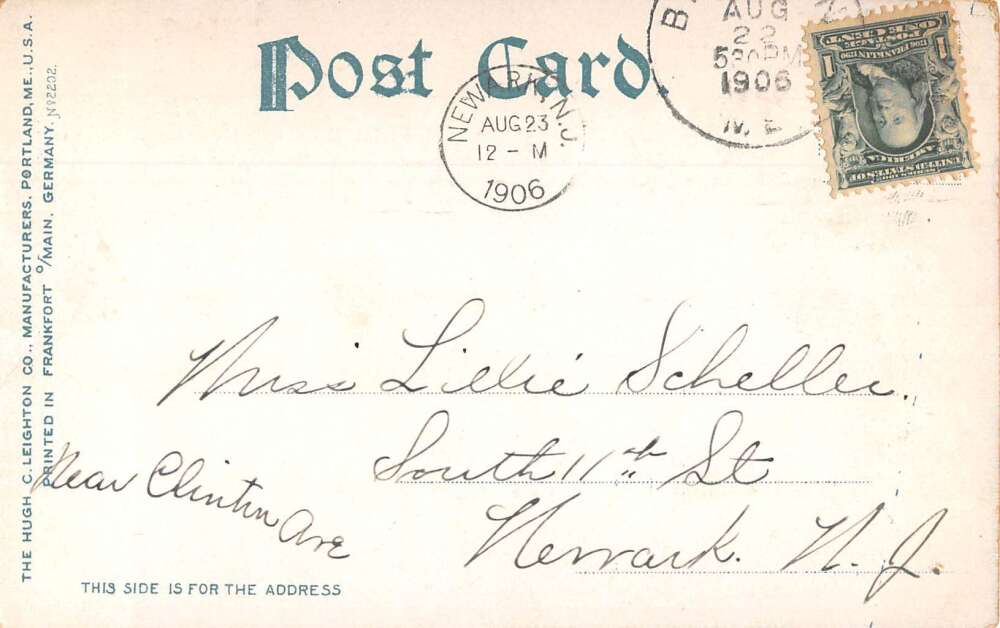 Post Card.
NEWARK, N.J.
AUG 23
12 - M
1906
AUG
22
530PM
1906
ME
ONE CENT
POSTAGE
1706 FRANKLIN 1790
1 1
UNITED STATES OF
AMERICA
Miss Lillie Scheller.
South 11th St
Near Clinton Ave
Newark. N. J.
THIS SIDE IS FOR THE ADDRESS
THE HUGH C. LEIGHTON CO., MANUFACTURERS, PORTLAND, ME., U.S.A.
PRINTED IN FRANKFORT O/MAIN, GERMANY. Nº 2202.